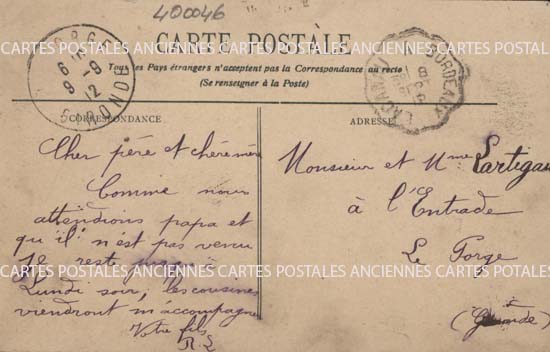 400046
CARTE POSTALE
Tous les Pays étrangers n'acceptent pas la Correspondance au recto
(Se renseigner à la Poste)
CORRESPONDANCE
ADRESSE
Cher père et chère mère
Comme nous
attendions papa et
qu'il n'est pas venu
je reste jusqu'à
Lundi soir, les cousines
viendront m'accompagner
Votre fils
R L
Monsieur et Mme Lartigau
à l'Entrade
Le Porge
(Gironde)
CARTES POSTALES ANCIENNES CARTES POSTALES ANCIENNES CARTES POSTALES
CARTES POSTALES ANCIENNES CARTES POSTALES ANCIENNES CARTES POTALES
GIRONDE
6 9
9 12
BORDEAUX